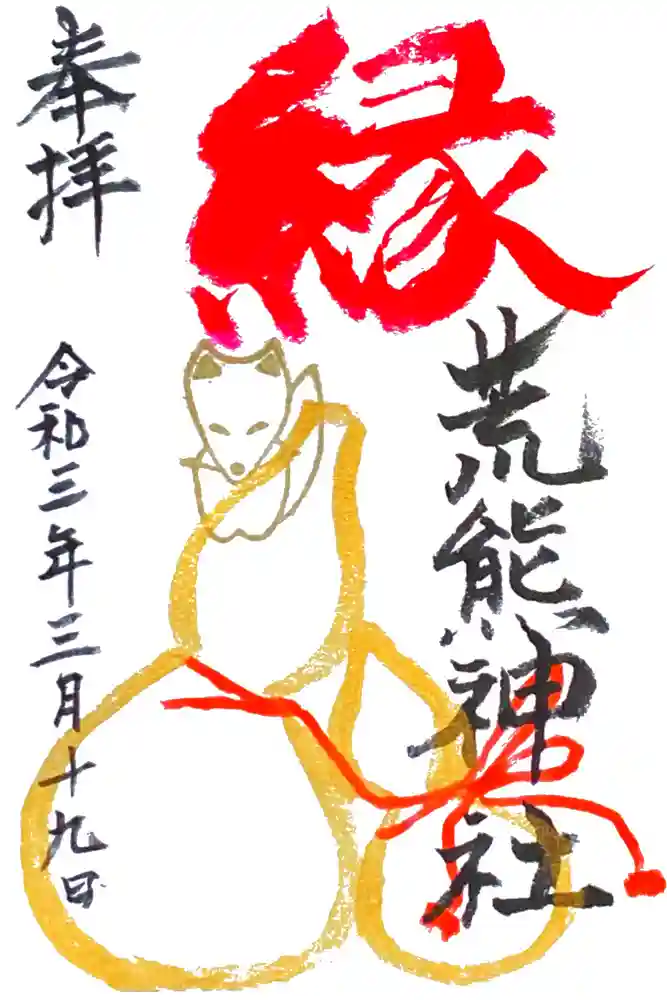 縁
荒熊神社
奉拝
令和三年三月十九日